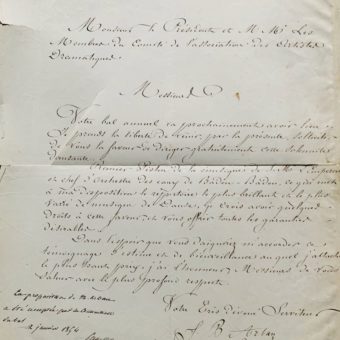 Monsieur le Président et M. Mrs Les
Membres du Comité de l'association des Artistes
Dramatiques.
Messieurs
Votre bal annuel va prochainement avoir lieu
Je prends la liberté de venir, par la présente, solliciter
de vous la faveur de diriger gratuitement cette solennité
dansante.
Premier Piston de la musique de l'Empereur
et chef d'orchestre des eaux de Baden-Baden, ce qui met
à ma disposition le répertoire le plus brillant et le plus
varié de musique de Danse, je crois avoir quelque
droits à cette faveur et vous offrir toutes les garanties
désirables.
Dans l'espoir que vous daignerez m'accorder ce
témoignage d'estime et de bienveillance auquel j'attache
le plus haut prix, j'ai l'honneur Messieurs de vous
saluer avec le plus profond respect.
Votre très dévoué Serviteur
J B Arban
La proposition de
a été
bal
2 janvier